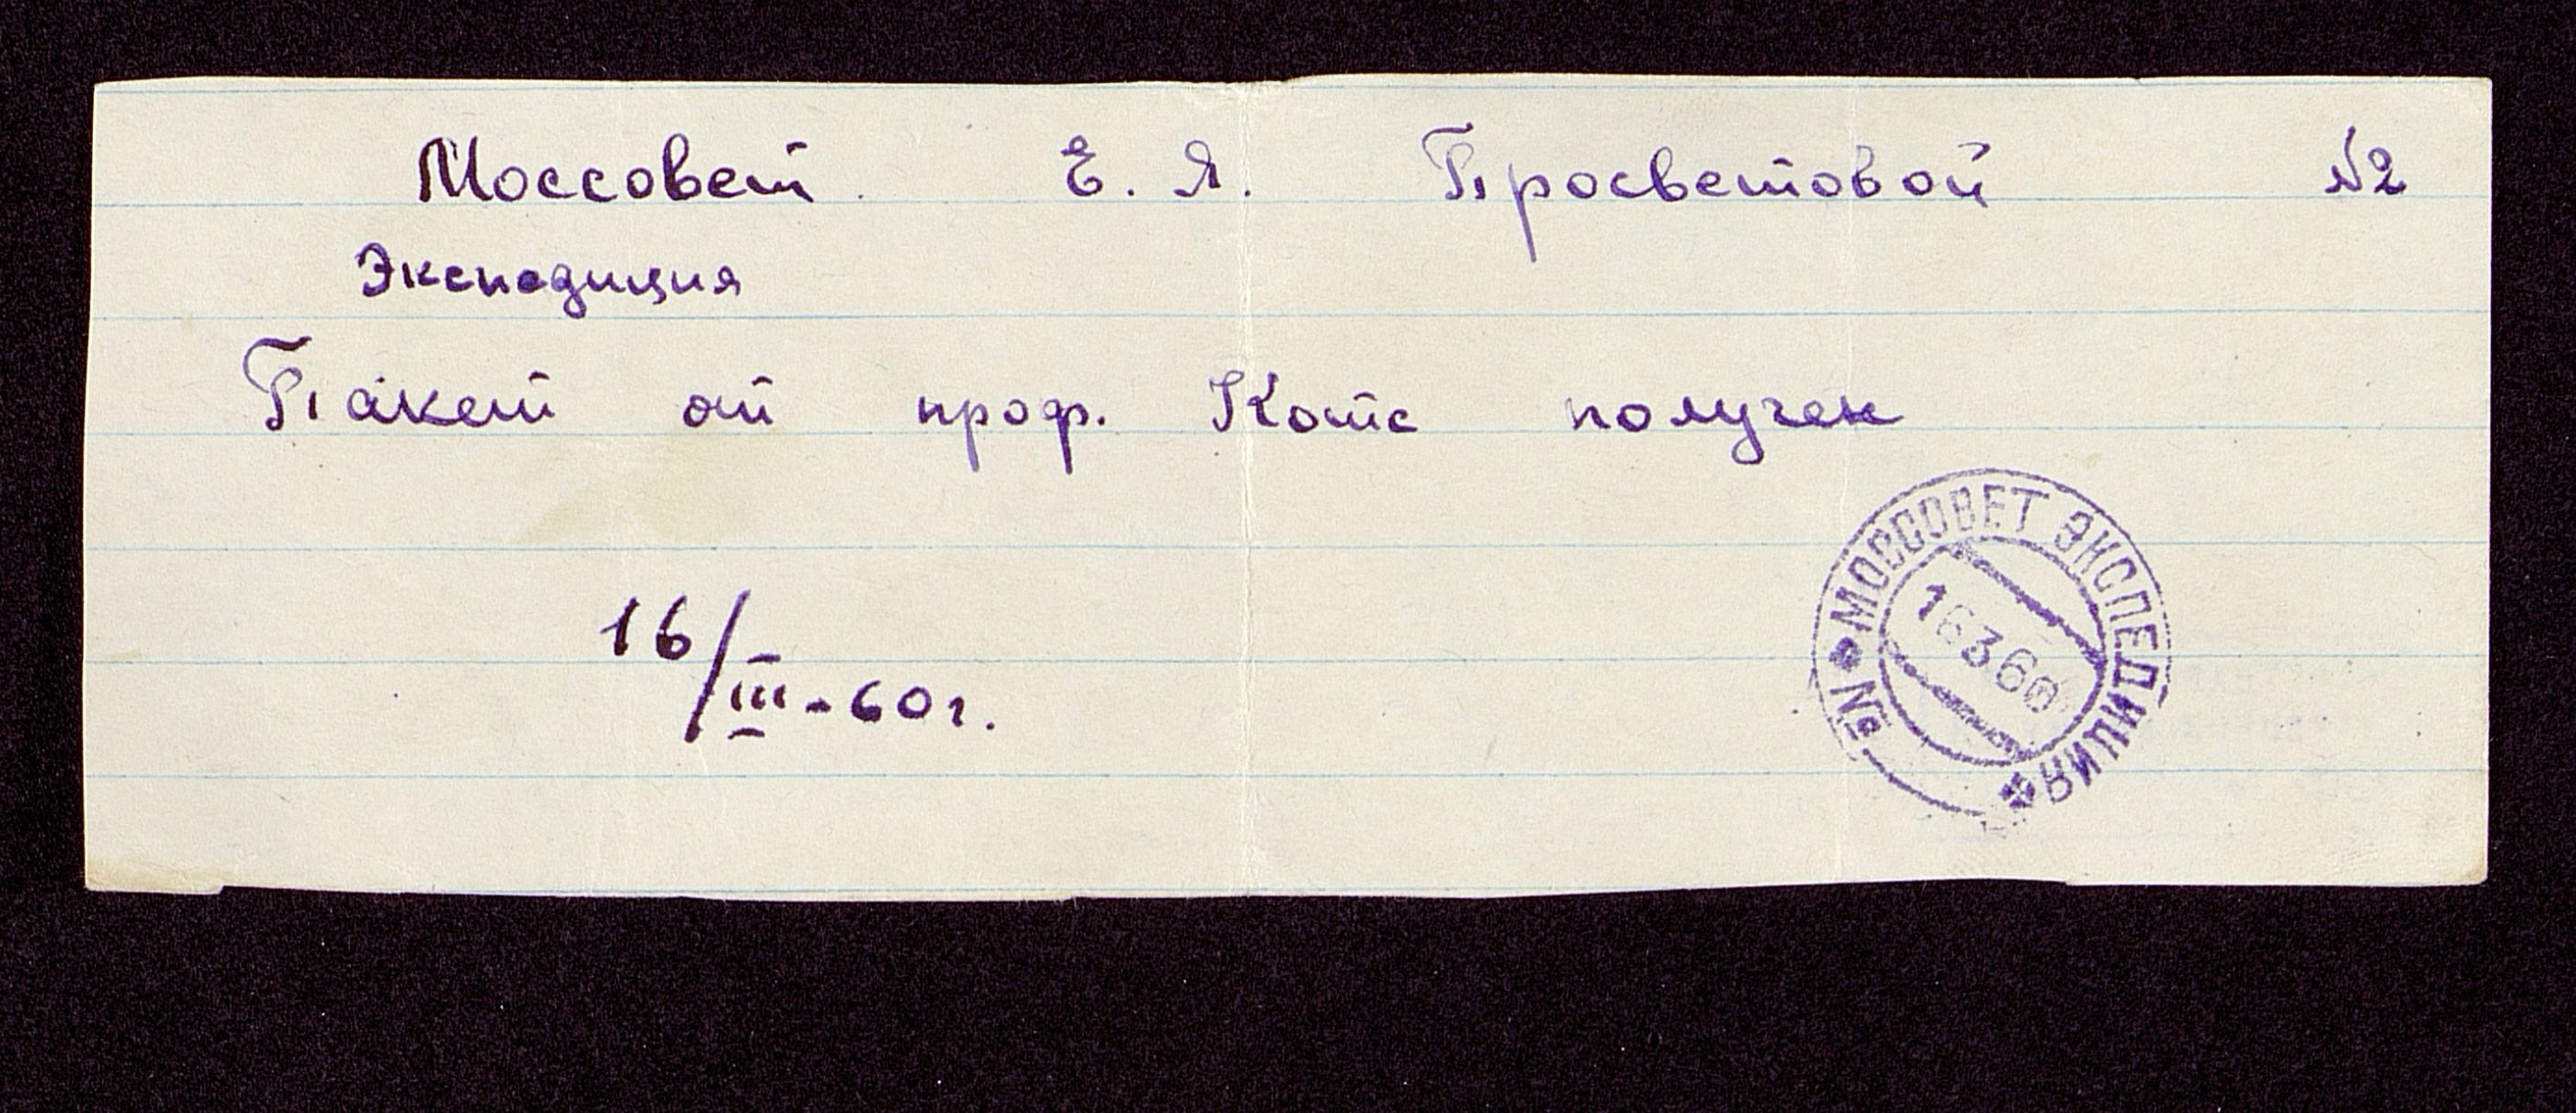 Моссовет. Е. Я. Просветовой №2
Экспедиция
Пакет от проф. Котс получен
16/III-60г.
МОССОВЕТ ЭКСПЕДИЦИЯ №
16 3 60